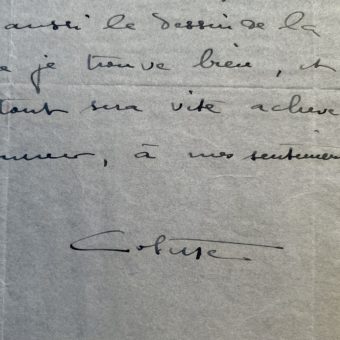 aussi le dessin de la
je trouve bien, et
tout sera vite achevé
, à mes sentiments